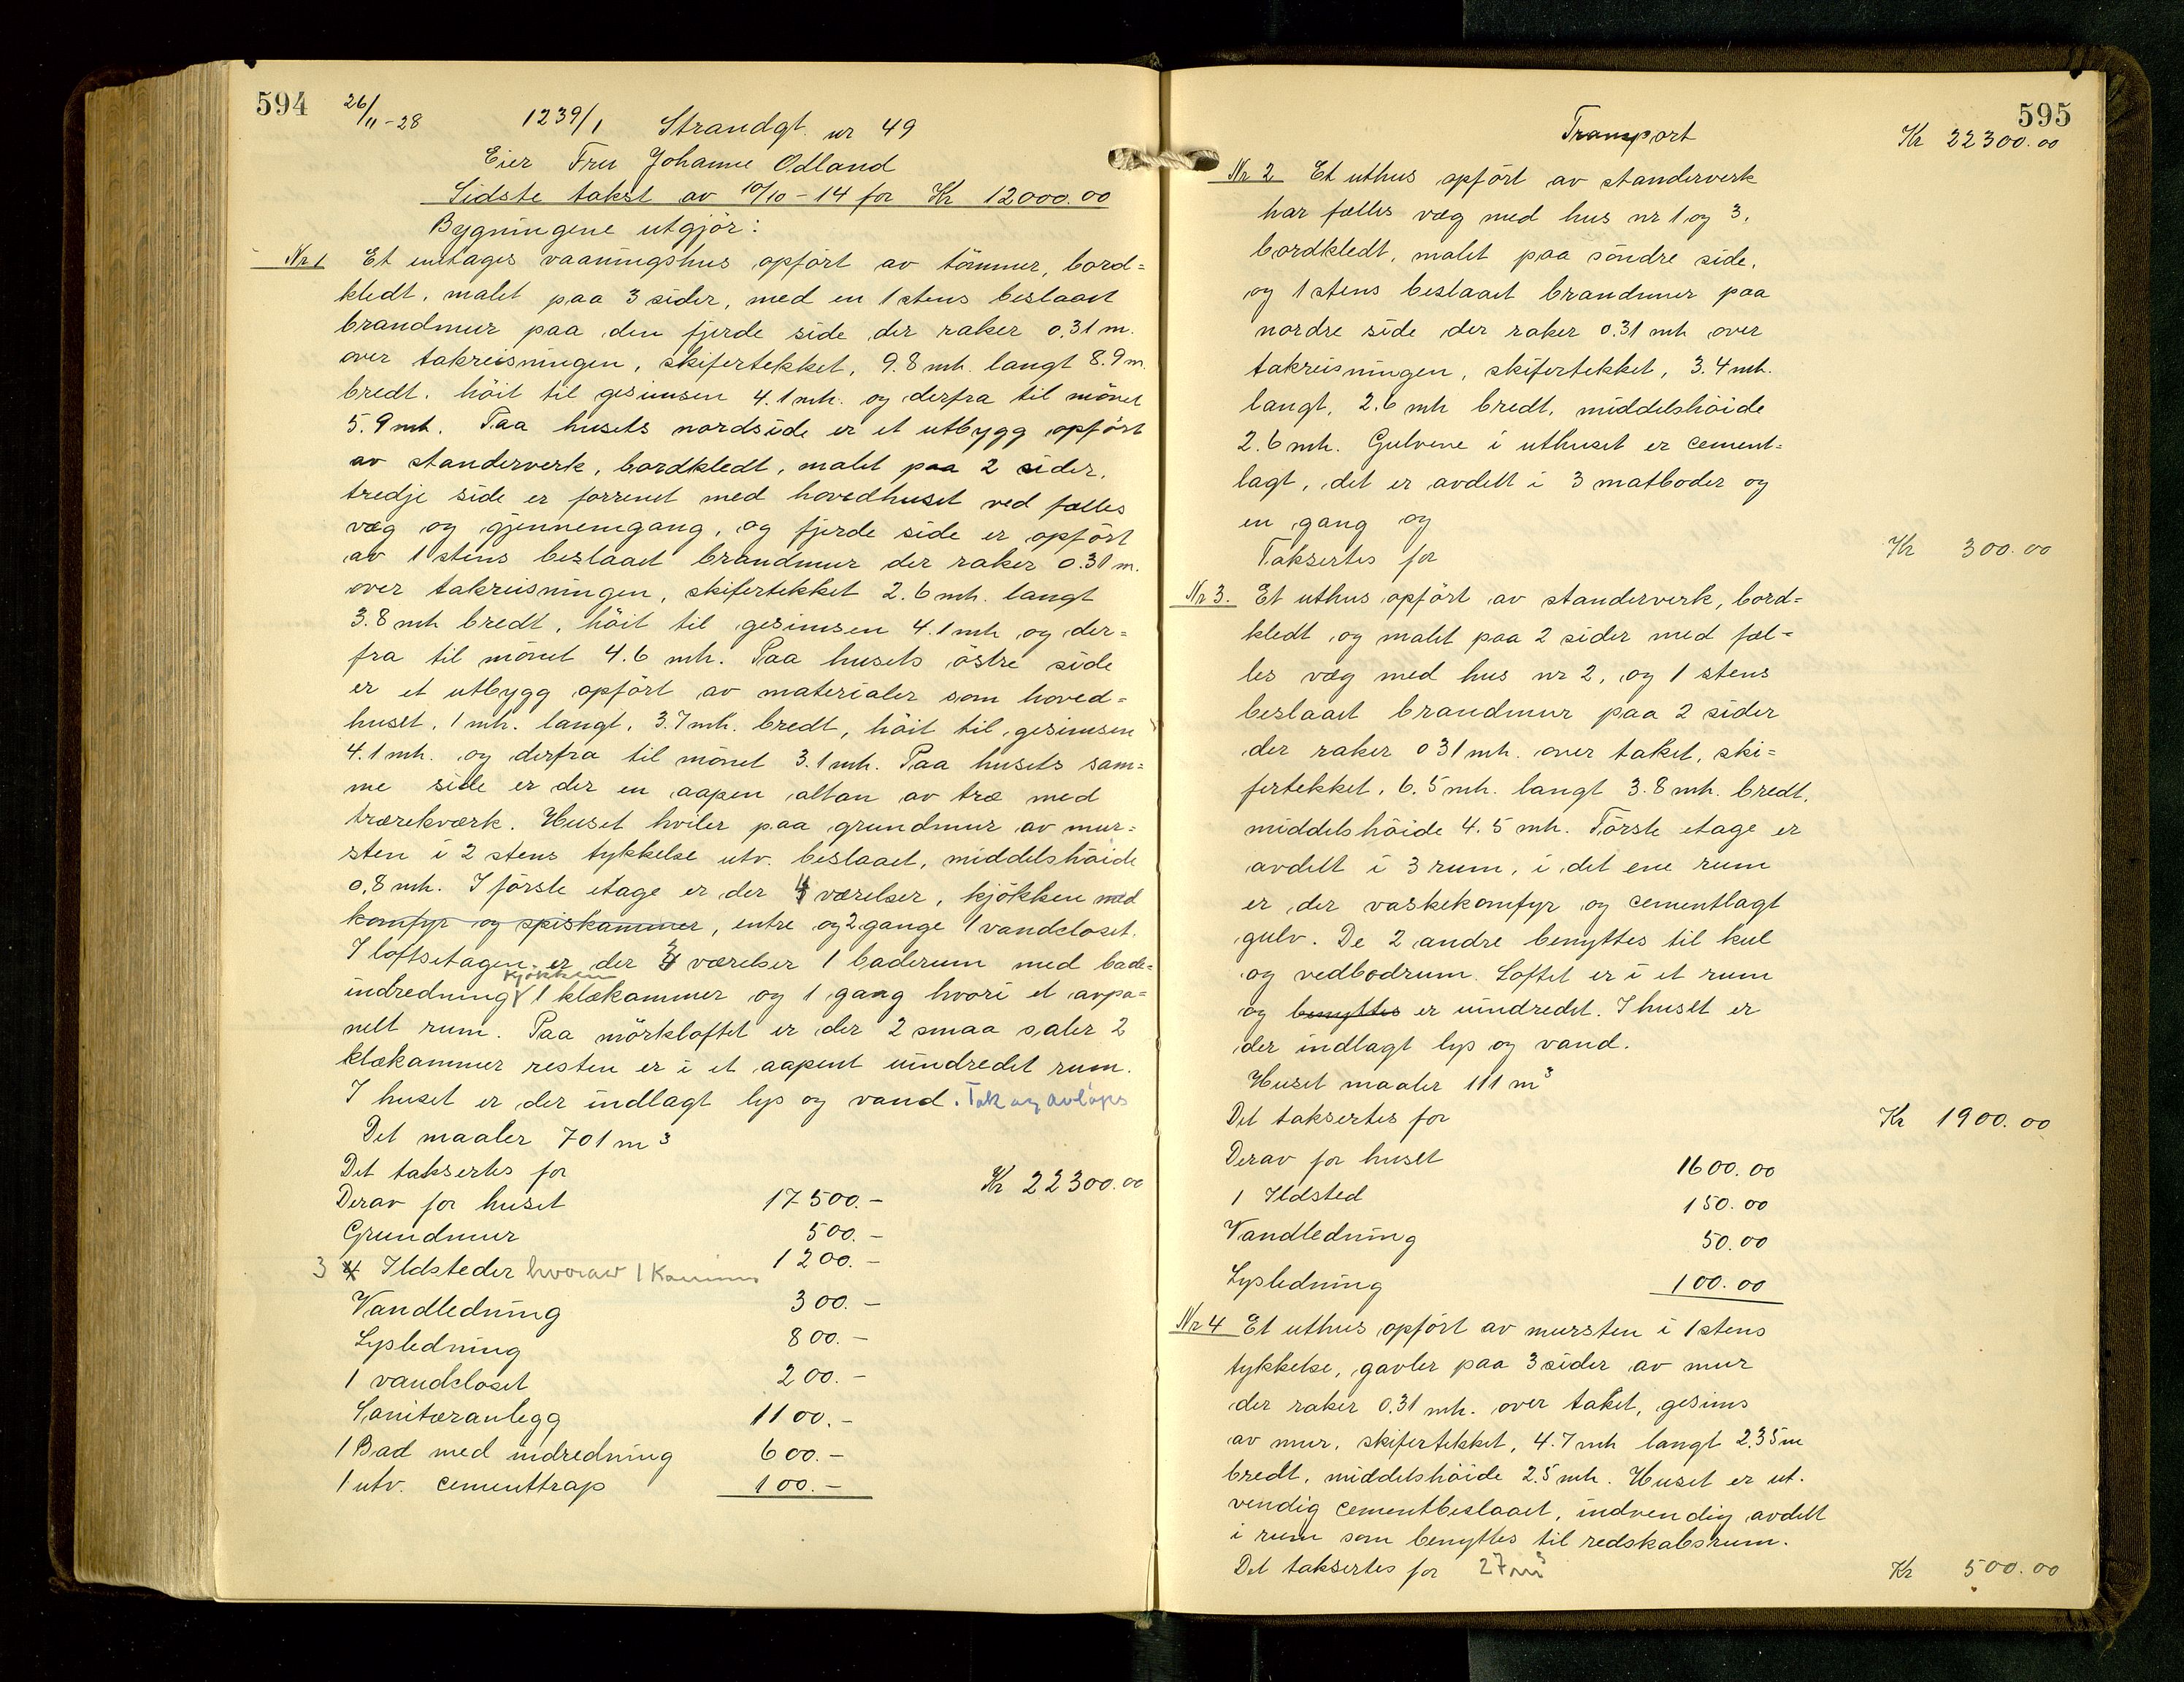 594
26/11-28 1239/1 Strandgt. nr 49
Eier Fru Johanne Odland
Sidste takst av 10/10-14 for Kr 12000.00
Bygningene utgjör:
Nr 1 Et entages vaaningshus opfört av tömmer, bord=
kledt, malet paa 3 sider, med en 1 stens beslaaet
brandmur paa den fjerde side der raker 0.31 m.
over takreisningen, skifertekket, 9.8 mh. langt 8.9 m.
bredt, höit til gesimsen 4.1 mh. og derfra til mönet
5.9 mh. Paa husets nordside er et utbygg opfört
av standerverk, bordkledt, malet paa 2 sider,
tredje side er forrenet med hovedhuset ved fælles
væg og gjennemgang, og fjerde side er opfört
av 1 stens beslaaet brandmur der raker 0.31 m.
over takreisningen, skifertekket 2.6 mh. langt
3.8 mh bredt, höit til gesimsen 4.1 mh og der=
fra til mönet 4.6 mh. Paa husets östre side
er et utbygg opfört av materialer som hoved=
huset, 1 mh. langt, 3.7 mh. bredt, höit til gesimsen
4.1 mh. og derfra til mönet 3.1 mh. Paa husets sam=
me side er der en aapen altan av træ med
trærekværk. Huset hviler paa grundmur av mur=
sten i 2 stens tykkelse utv. beslaaet, middelshöide
0,8 mh. I förste etage er der 4 værelser, kjökken med
komfyr og spiskammer, entre og 2 gange 1 vandcloset.
I loftsetagen er der 3 værelser 1 baderum med bade=
kjökken
indredning 1 klækammer og 1 gang hvori et avpa=
nelt rum. Paa mörkloftet er der 2 smaa saler 2
klækammer resten er i et aapent uindredet rum.
I huset er der indlagt lys og vand. Tak og avlöps
Det maaler 701 m³
Det taksertes for Kr 22300.00
Derav for huset 17500.-
Grundmur 500.-
3 4 Ildsteder hvorav 1 Kamin 1200.-
Vandledning 300.-
Lysledning 800.-
1 vandcloset 200.-
Sanitæranlegg 1100.-
1 Bad med indredning 600.-
1 utv. cementtrap 100.-
595
Transport Kr 22300.00
Nr 2 Et uthus opfört av standerverk
har fælles væg med hus nr 1 og 3,
bordkledt, malet paa söndre side,
og 1 stens beslaaet brandmur paa
nordre side der raker 0.31 mh over
takreisningen, skifertekket, 3.4 mh.
langt, 2.6 mh bredt, middelshöide
2.6 mh. Gulvene i uthuset er cement=
lagt, det er avdelt i 3 matboder og
en gang og
Taksertes for Kr 300.00
Nr 3. Et uthus opfört av standerverk, bord=
kledt og malet paa 2 sider med fæl=
les væg med hus nr 2, og 1 stens
beslaaet brandmur paa 2 sider
der raker 0 31 mh. over taket, ski=
fertekket, 6.5 mh. langt 3.8 mh. bredt,
middelshöide 4.5 mh. Förste etage er
avdelt i 3 rum, i det ene rum
er der vaskekomfyr og cementlagt
gulv. De 2 andre benyttes til kul
og vedbodrum. Loftet er i et rum
og benyttes er uindredet. I huset er
der indlagt lys og vand.
Huset maaler 111 m³
Det taksertes for Kr 1900.00
Derav for huset 1600.00
1 Ildsted 150.00
Vandledning 50.00
Lysledning 100.00
Nr 4 Et uthus opfört av mursten i 1 stens
tykkelse, gavler paa 3 sider av mur
der raker 0.31 mh. over taket, gesims
av mur, skifertekket, 4.7 mh langt 2,35 m
bredt, middelshöide 2.5 mh. Huset er ut.
vendig cementbeslaaet, indvendig avdelt
i rum som benyttes til redskabsrum.
Det taksertes for 27 m³ Kr 500.00